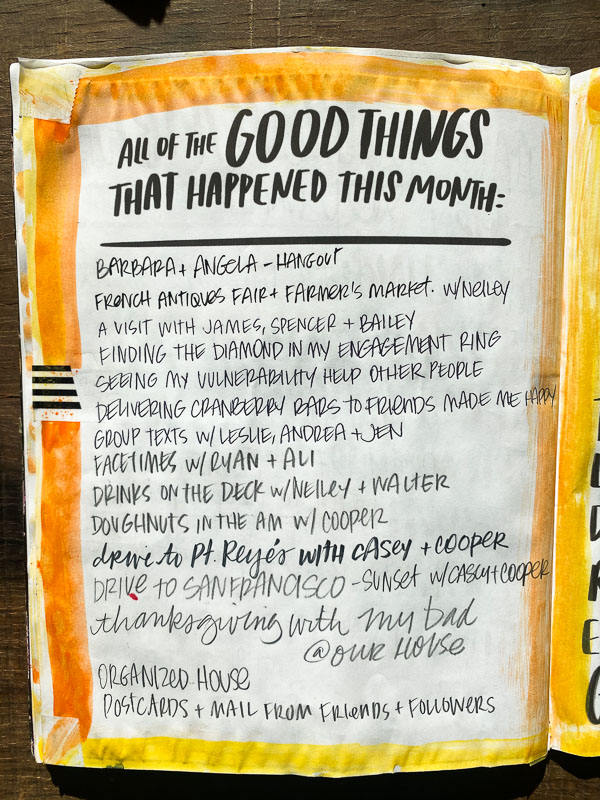 ALL OF THE GOOD THINGS
THAT HAPPENED THIS MONTH:
BARBARA + ANGELA - HANGOUT
FRENCH ANTIQUES FAIR + FARMER'S MARKET. W/NEILEY
A VISIT WITH JAMES, SPENCER + BAILEY
FINDING THE DIAMOND IN MY ENGAGEMENT RING
SEEING MY VULNERABILITY HELP OTHER PEOPLE
DELIVERING CRANBERRY BARS TO FRIENDS MADE ME HAPPY
GROUP TEXTS W/ LESLIE, ANDREA + JEN
FACETIMES W/ RYAN + ALI
DRINKS ON THE DECK W/ NEILEY + WALTER
DOUGHNUTS IN THE AM W/ COOPER
drive to Pt. Reyés WITH CASEY + COOPER
DRIVE TO SANFRANCISCO - SUNSET W/CASEY+COOPER
thanksgiving with my dad
@ OUR HOUSE
ORGANIZED HOUSE
POSTCARDS + MAIL FROM FRIENDS + FOLLOWERS